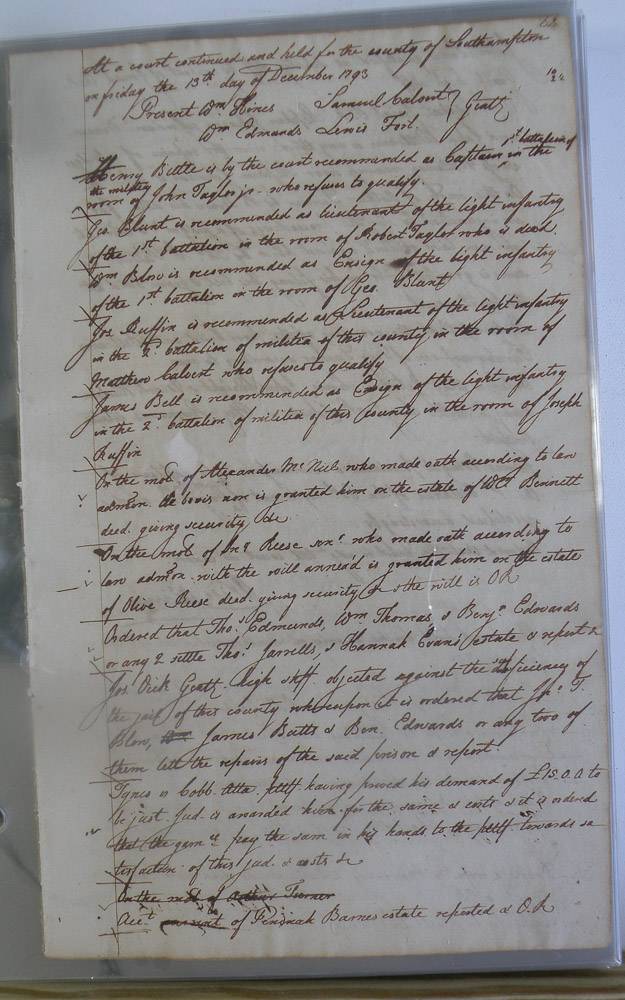 At a court continued and held for the county of Southampton
on friday the 13th day of December 1793
Present Wm. Hines Samuel Calvert } Gentz
Wm Edmunds Lewis Fort.
Henry Bittle is by the court recommended as Captain 1st battalion of in the
the militia room of John Taylor jr. who refuses to qualify.
Geo. Blunt is recommended as lieutenant of the light infantry
of the 1st battalion in the room of Robert Taylor who is dead.
Wm. Blow is recommended as Ensign of the light infantry
of the 1st battalion in the room of Geo. Blunt
Jos. Ruffin is recommended as Lieutenant of the light infantry
in the 2d. battalion of militia of this county in the room of
Matthew Calvert who refuses to qualify
James Bell is recommended as Ensign of the light infantry
in the 2d. battalion of militia of this county in the room of Joseph
Ruffin
On the mot. of Alexander McNiel who made oath according to law
admon. de bonis non is granted him on the estate of Bennett
deed. giving security &c
On the mot of Jno. Reese senr. who made oath according to
law admon. with the will annex'd is granted him on the estate
of Olive Reese deed. giving security & the will is O.R
Ordered that Tho. Edmunds, Wm Thomas, & Benj. Edwards
or any 2 settle Thos. Jarrells, & Hannah Evans estate & report &
Jos. Dick Gentz. high shff. objected against the deficiency of
the jail of this county whereupon it is ordered that Jno. T.
Blow, James Butts & Ben. Edwards or any two of
them lett the repairs of the said prison & report.
Tynes vs Cobb. Atta. pltff having proved his demand of £15.0.0 to
be just. Jud. is awarded him for the same & costs & it is ordered
that the garn. pay the sum in his hands to the pltff towards sa
tisfaction of this jud. & costs &c
On the mot of Arthur Turner
Acct. of Barnes estate reported & O.R